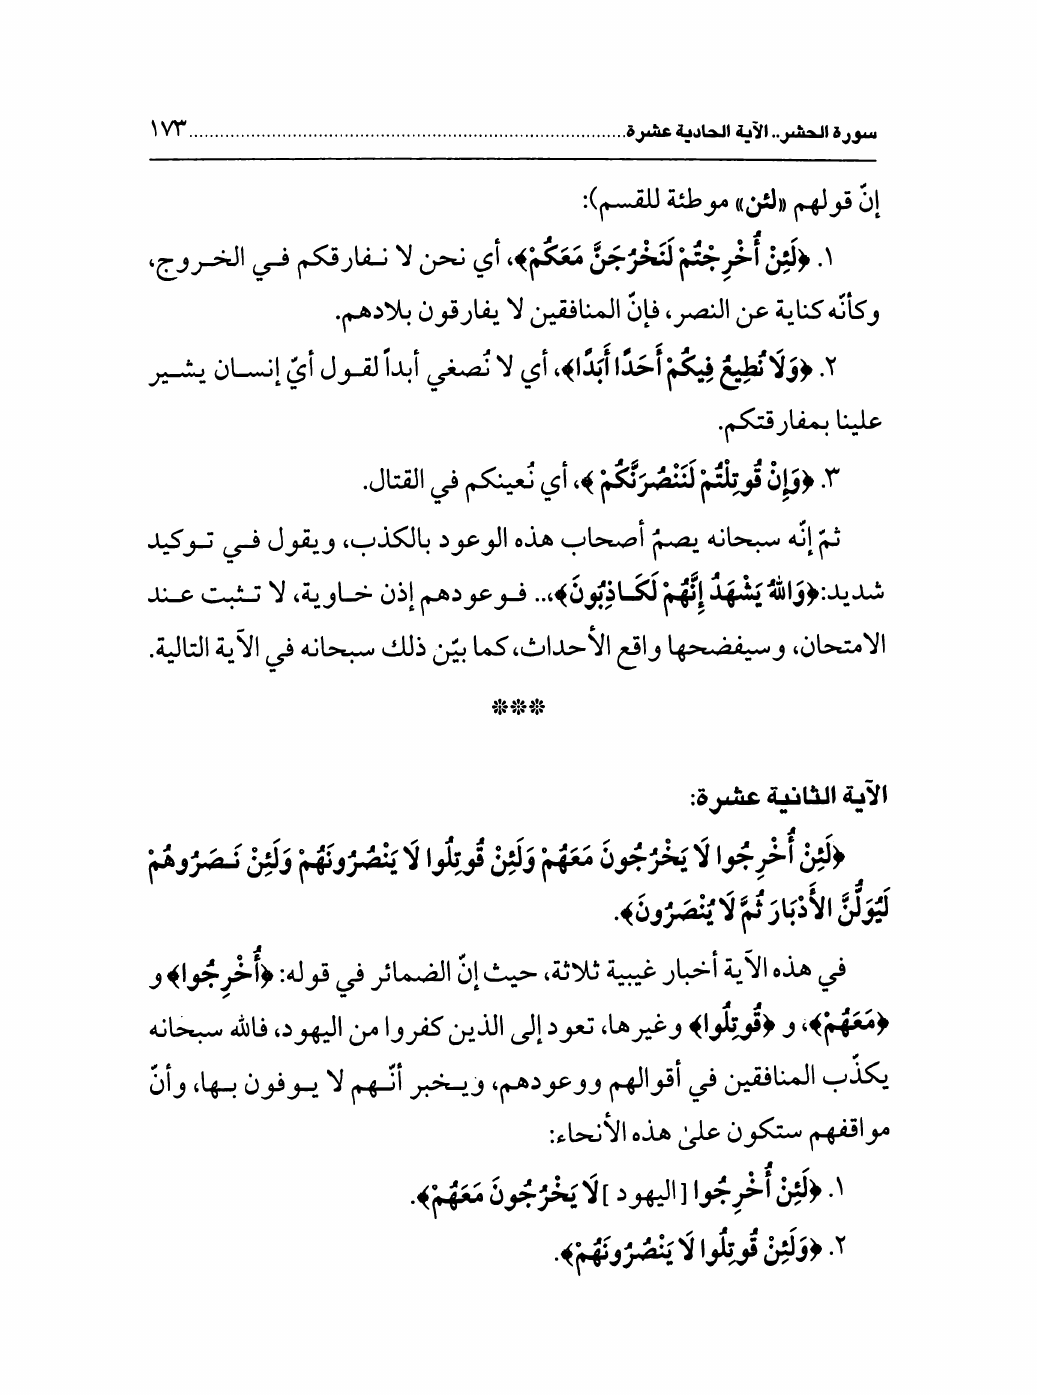 سورة الحشر.. الآية الحادية عشرة ........ ١٧٣
إنّ قولهم «لئن» موطئة للقسم):
١. ﴿لَئِنْ أُخْرِجْتُمْ لَنَخْرُجَنَّ مَعَكُمْ﴾، أي نحن لا نفارقكم في الخروج،
وكأنّه كناية عن النصر، فإنّ المنافقين لا يفارقون بلادهم.
٢. ﴿وَلَا نُطِيعُ فِيكُمْ أَحَدًا أَبَدًا﴾، أي لا نُصغي أبداً لقول أيّ إنسان يشير
علينا بمفارقتكم.
٣. ﴿وَإِنْ قُوتِلْتُمْ لَنَنْصُرَنَّكُمْ﴾، أي نُعينكم في القتال.
ثمّ إنّه سبحانه يصمُ أصحاب هذه الوعود بالكذب، ويقول في توكيد
شديد:﴿وَاللهُ يَشْهَدُ إِنَّهُمْ لَكَاذِبُونَ﴾،.. فوعودهم إذن خاوية، لا تثبت عند
الامتحان، وسيفضحها واقع الأحداث، كما بيّن ذلك سبحانه في الآية التالية.
***
الآية الثانية عشرة:
﴿لَئِنْ أُخْرِجُوا لَا يَخْرُجُونَ مَعَهُمْ وَلَئِنْ قُوتِلُوا لَا يَنْصُرُونَهُمْ وَلَئِنْ نَصَرُوهُمْ
لَيُوَلُّنَّ الأَدْبَارَ ثُمَّ لَا يُنْصَرُونَ﴾.
في هذه الآية أخبار غيبية ثلاثة، حيث إنّ الضمائر في قوله: ﴿أُخْرِجُوا﴾ و
﴿مَعَهُمْ﴾، و ﴿قُوتِلُوا﴾ وغيرها، تعود إلى الذين كفروا من اليهود، فالله سبحانه
يكذّب المنافقين في أقوالهم ووعودهم، ويخبر أنّهم لا يوفون بها، وأنّ
مواقفهم ستكون علىٰ هذه الأنحاء:
١. ﴿لَئِنْ أُخْرِجُوا [اليهود] لَا يَخْرُجُونَ مَعَهُمْ﴾.
٢. ﴿وَلَئِنْ قُوتِلُوا لَا يَنْصُرُونَهُمْ﴾.